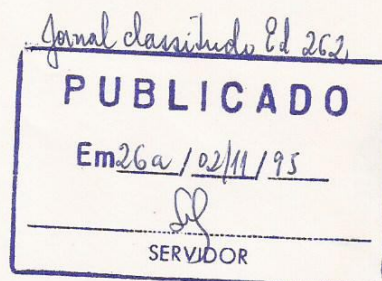 Jornal classitudo Ed 262
PUBLICADO
Em 26 a / 02/11 / 95
SERVIDOR